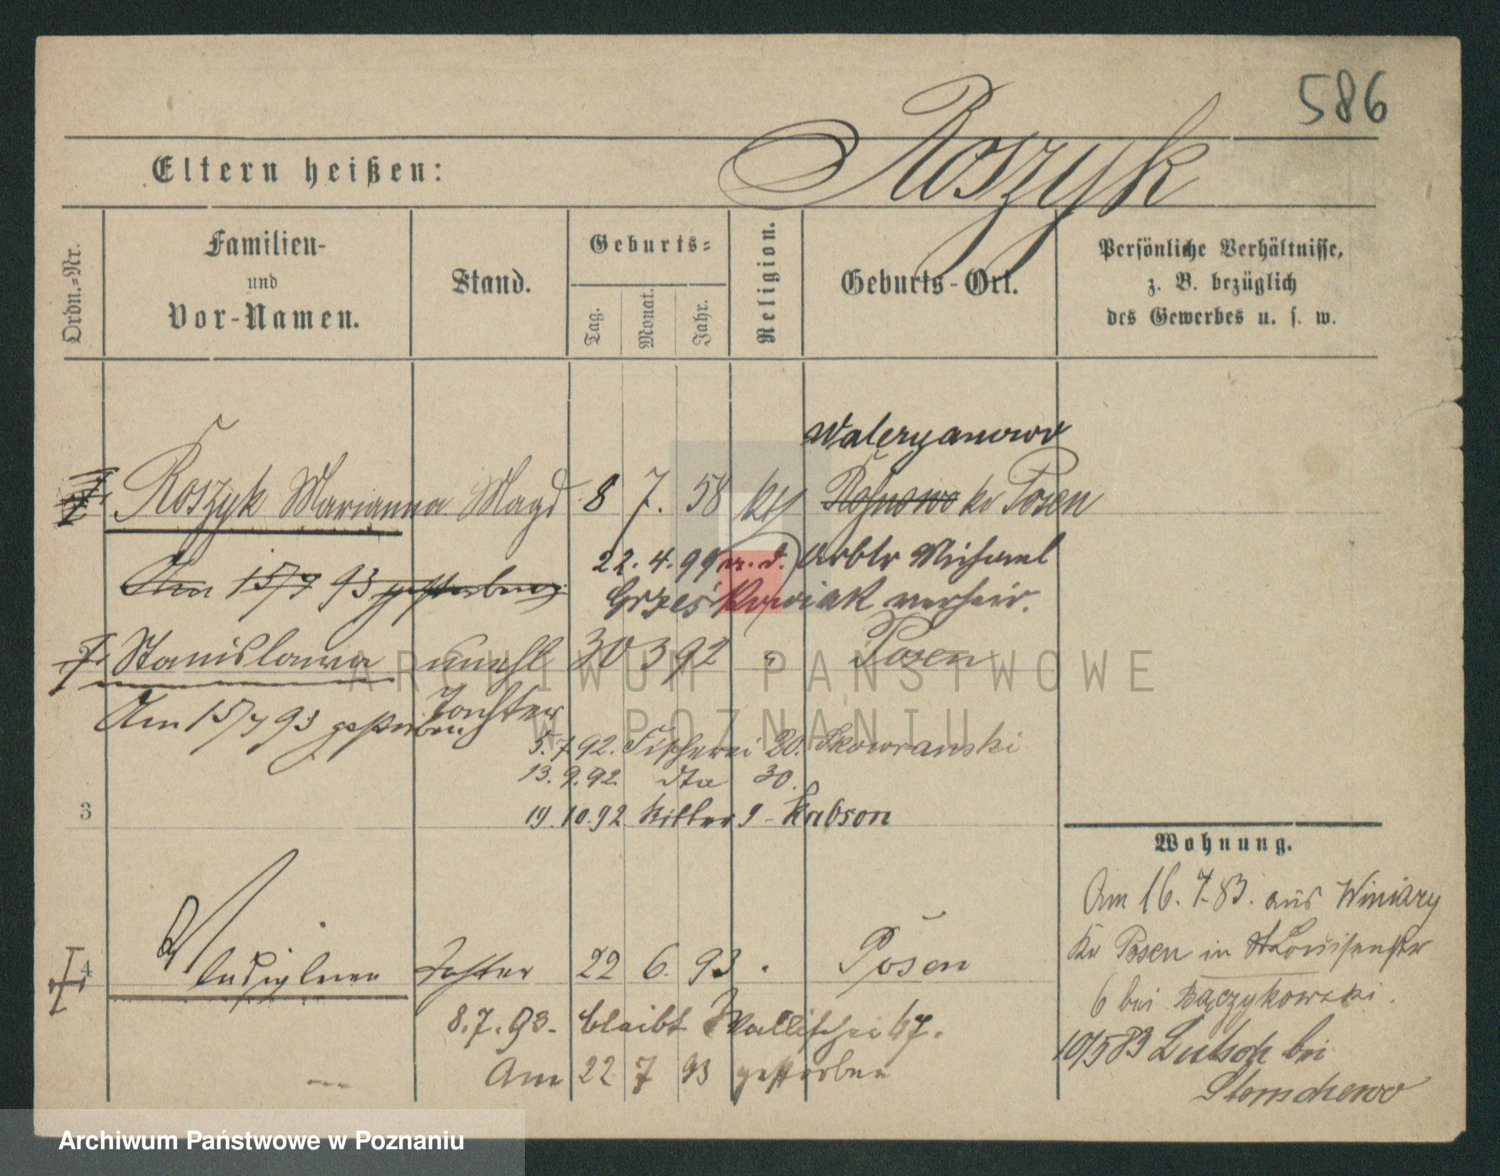 586
Eltern heißen: Roszyk
Ordn.-Nr.
Familien-
und
Vor-Namen.
Stand.
Geburts-
Tag.
Monat.
Jahr.
Religion.
Geburts-Ort.
Persönliche Verhältnisse,
z. B. bezüglich
des Gewerbes u. s. w.
Waleryanowo
Roszyk Marianna Magd 8 7. 58 kth Posen
22. 4. 99 m. d. Arbtr Michael
Am 15/7 93 gestorben
Grześkowiak verheir.
Stanislawa unehl 30 3 92 " Posen
Tochter
Am 15/7 93 gestorben
5. 7 92. Fischerei 20. Skowranski
13. 9. 92 dto 30.
3
19. 10. 92 Ritter 9 - Krabson
Wohnung.
Am 16. 7. 83. aus Winiary
Kr Posen in St Louisenstr
6 bei Bączykowski.
4
Tochter 22 6. 93 . Posen
8. 7. 93 - bleibt Wallischei 67.
10/5 83 Lutsch bei
Am 22 7 93 gestorben
ARCHIWUM PAŃSTWOWE
W POZNANIU
Archiwum Państwowe w Poznaniu